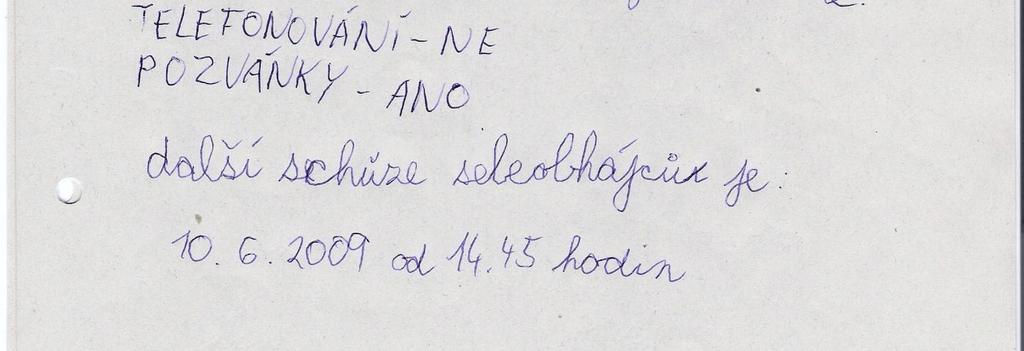 TELEFONOVÁNÍ - NE
POZVÁNKY - ANO
další schůze sebeobhájcův je:
10. 6. 2009 od 14.45 hodin